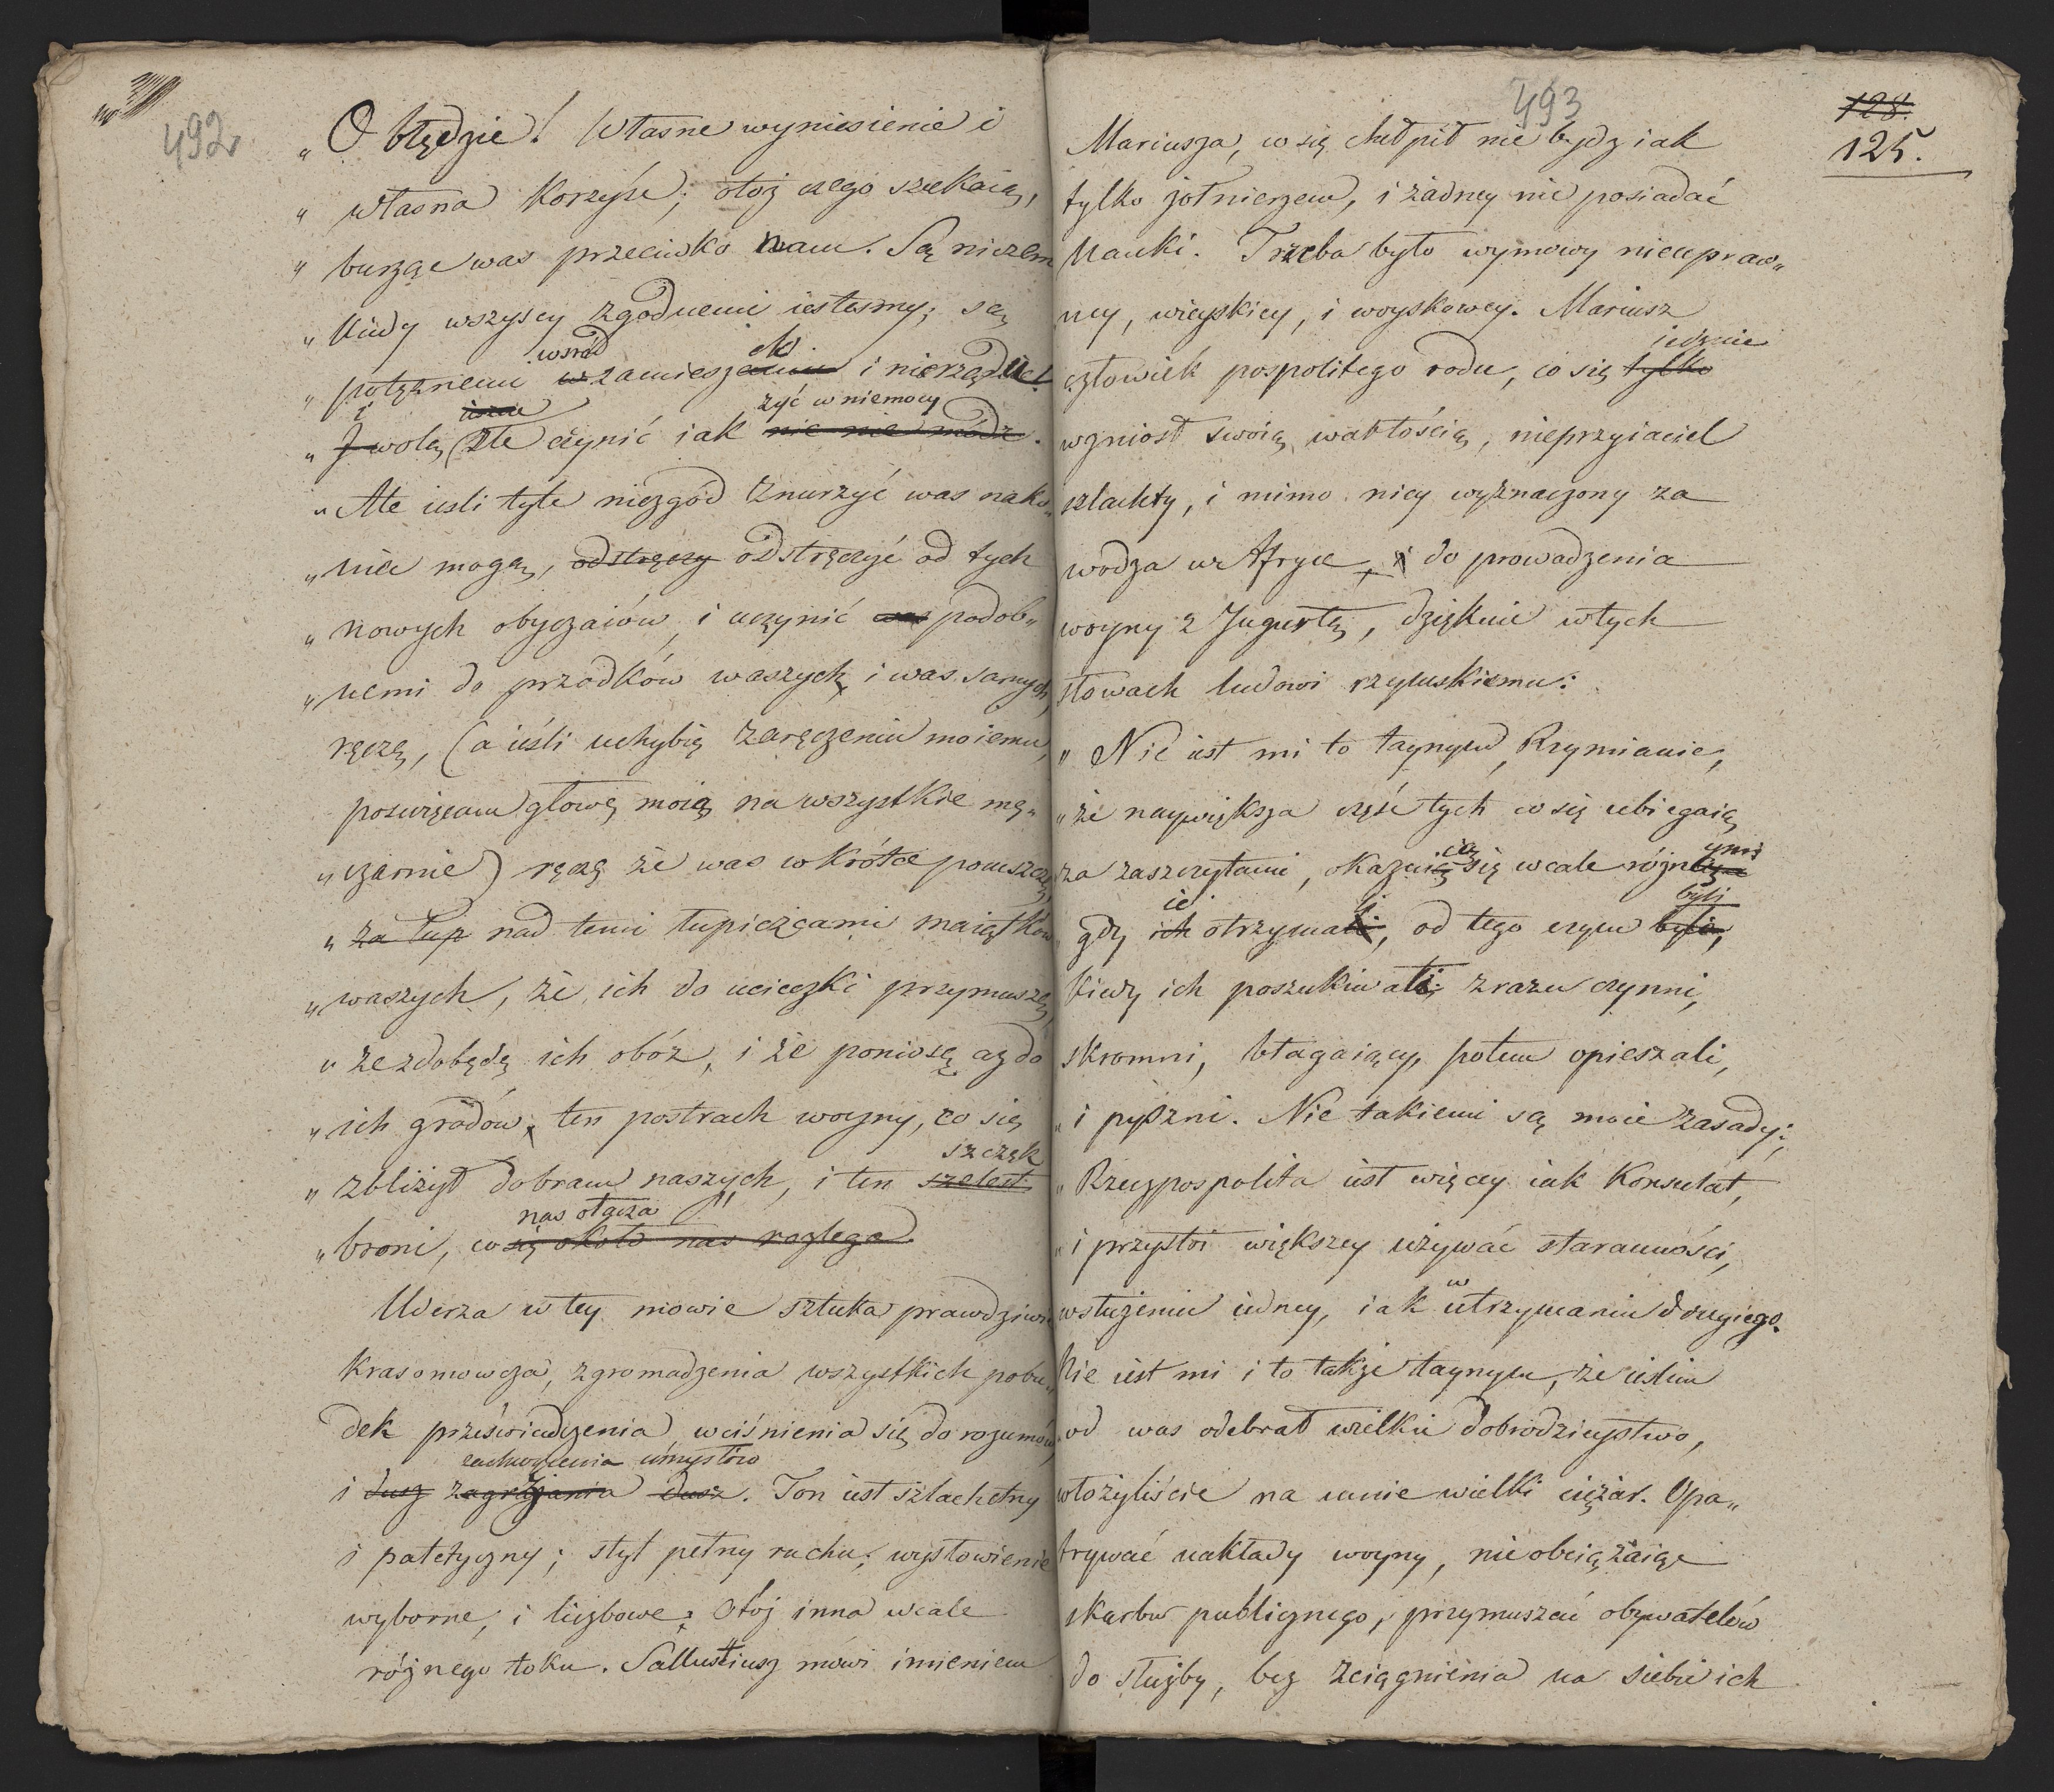 492
„ O błędzie! Własne wyniesienie i
„ własna korzyść; otóż czego szukaią,
„ burząc was przeciwko nam. Są niczem
„ kiedy wszyscy zgodnemi iestesmy; są
wsród ek
„ potężnemi w zamieszaniu i nierządzie!
i żyć w niemocy
„ I wolą źle czynić iak nic nie módz.
„ Ale iesli tyle niezgód znurzyć was nako„
„ niec mogą, odstręczy odstręczyć od tych
„ nowych obyczaiów, i uczynić was podob„
„ nemi do przodków waszych, i was samych,
ręczę, (a ieśli uchybię zaręczeniu moiemu,
poswięcam głowę moią na wszystkie mę„
„ czarnie) ręczę że was wkrótce pomszczę,
„ za łup nad temi łupieżcami maiątków
„ waszych, że ich do ucieczki przymuszę,
„ że zdobędę ich obóz, i że poniosę aż do
„ ich grodów, ten postrach woyny, co się
szczęk
„ zbliżył dobram naszych, i ten szelest
nas otacza
„ broni, co się około nas rozlega.
Uderza w tey mowie sztuka prawdziwie
krasomowcza, zgromadzenia wszystkich pobu„
dek przeświadczenia, wciśnienia się do rozumów,
zachwycenia umysłów
i dusz zagrzania dusz. Ton iest szlachetny
i patetyczny; styl pełny ruchu; wysłowienie
wyborne, i liczbowe. Otóż inna wcale
różnego toku. Sallustiusz mówi imieniem
493
128.
125.
Mariusza, co się chełpił nie bydz iak
tylko żołnierzem, i żadney nie posiadać
nauki. Trzeba było wymowy nieupraw„
ney, wieyskiey, i woyskowey. Mariusz
iedynie
człowiek pospolitego rodu, co się tylko
wzniosł swoią walecznością, nieprzyiaciel
szlachty, i mimo niey wyznaczony za
wodza w Afryce, i do prowadzenia
woyny z Jugurtą, dziękuie w tych
słowach ludowi rzymskiemu:
„ Nie iest mi to taynym, Rzymianie,
„ że naywiększa część tych co się ubiegaią
ią ymi
za zaszczytami, okazuią się wcale różną
ie li byli
„ gdy ich otrzymali, od tego czym byli,
kiedy ich poszukiwali; zrazu czynni,
skromni, błagaiący, potem opieszali,
„ i pyszni. Nie takiemi są moie zasady;
„ Rzeczpospolita iest więcey iak Konsulat,
„ i przystoi większey używać staranności,
w
wsłużeniu iedney, iak utrzymaniu drugiego.
Nie iest mi i to także taynym, że ieslim
od was odebrał wielkie dobrodzieystwo,
włożyliście na mnie wielki ciężar. Opa„
trywać nakłady woyny, nie obciążaiąc
skarbu publicznego, przymuszać obywatelów
do służby, bez zciągnienia na siebie ich